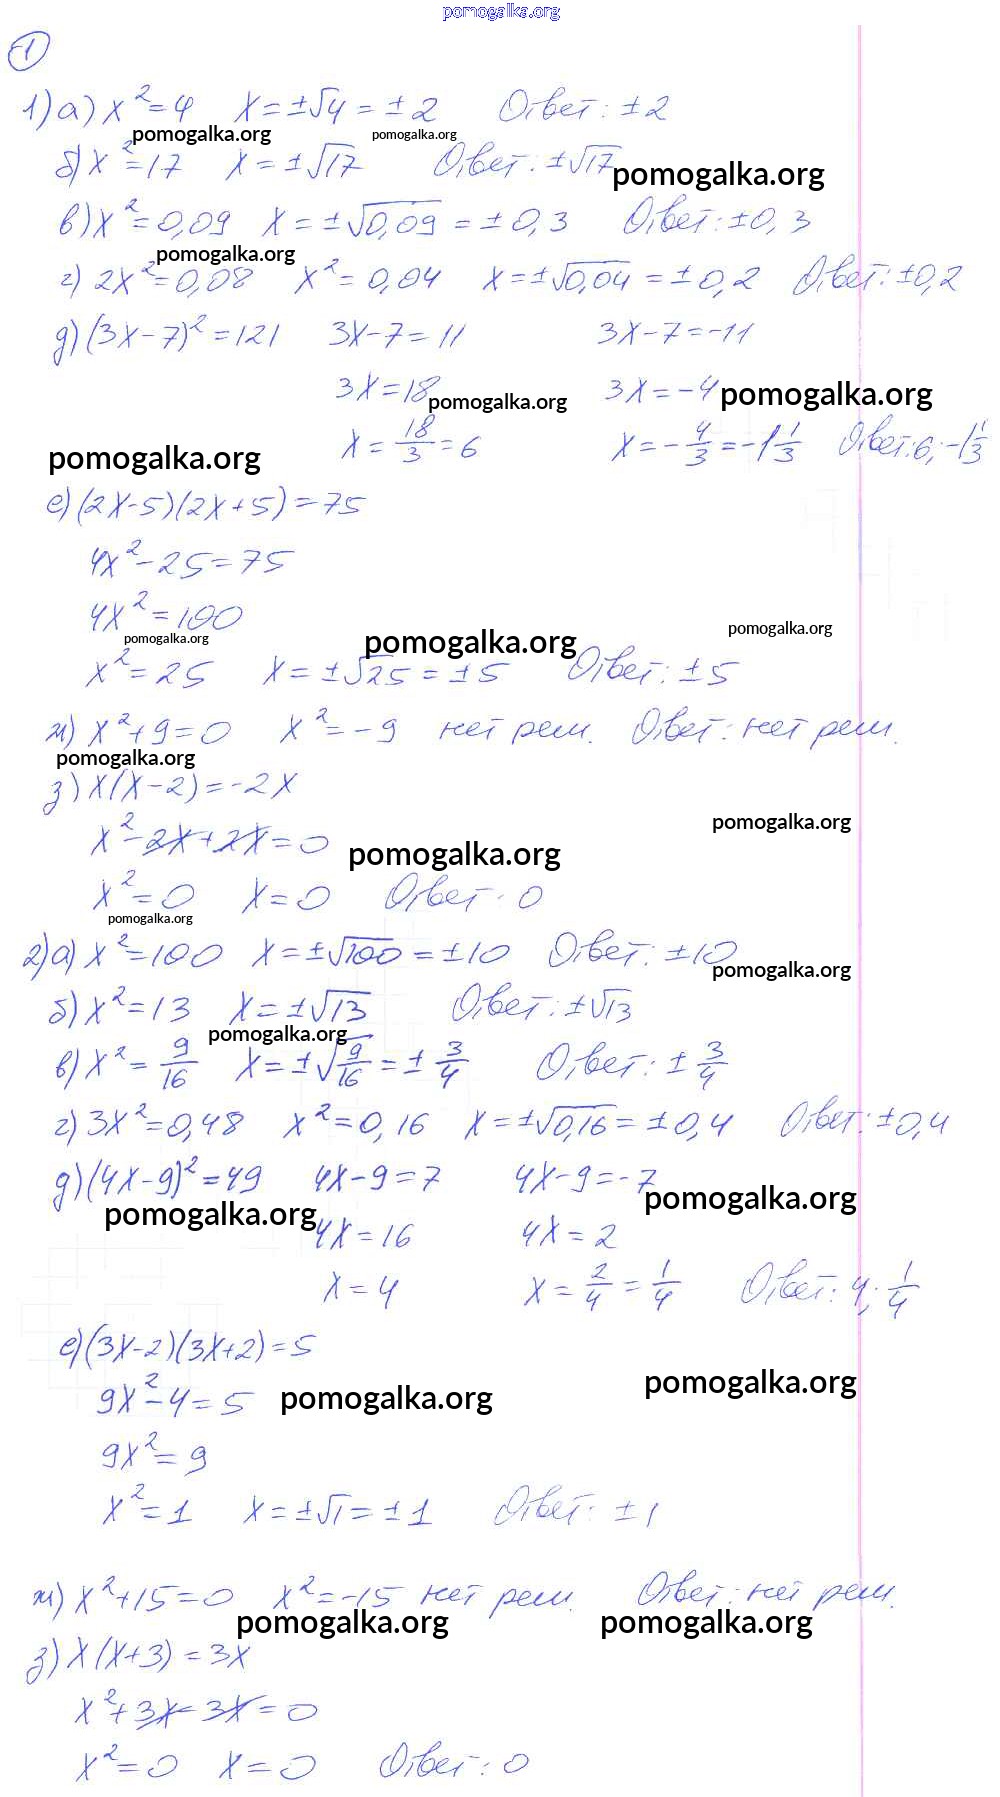 pomogalka.org
1
1) а) x² = 4   x = ±√4 = ±2   Ответ: ±2
pomogalka.org   pomogalka.org
б) x² = 17   x = ±√17   Ответ: ±√17
pomogalka.org
в) x² = 0,09   x = ±√0,09 = ±0,3   Ответ: ±0,3
pomogalka.org
г) 2x² = 0,08   x² = 0,04   x = ±√0,04 = ±0,2   Ответ: ±0,2
д) (3x-7)² = 121   3x-7 = 11   3x-7 = -11
3x = 18   3x = -4
pomogalka.org   pomogalka.org
x = 18/3 = 6   x = -4/3 = -1 1/3   Ответ: 6; -1 1/3
pomogalka.org
е) (2x-5)(2x+5) = 75
4x² - 25 = 75
4x² = 100
pomogalka.org   pomogalka.org   pomogalka.org
x² = 25   x = ±√25 = ±5   Ответ: ±5
ж) x² + 9 = 0   x² = -9   нет реш.   Ответ: нет реш.
pomogalka.org
з) x(x-2) = -2x
pomogalka.org
x² - 2x + 2x = 0
pomogalka.org
x² = 0   x = 0   Ответ: 0
pomogalka.org
2) а) x² = 100   x = ±√100 = ±10   Ответ: ±10
pomogalka.org
б) x² = 13   x = ±√13   Ответ: ±√13
pomogalka.org
в) x² = 9/16   x = ±√9/16 = ±3/4   Ответ: ±3/4
г) 3x² = 0,48   x² = 0,16   x = ±√0,16 = ±0,4   Ответ: ±0,4
д) (4x-9)² = 49   4x-9 = 7   4x-9 = -7
pomogalka.org   pomogalka.org
4x = 16   4x = 2
x = 4   x = 2/4 = 1/4   Ответ: 4; 1/4
е) (3x-2)(3x+2) = 5
9x² - 4 = 5
pomogalka.org   pomogalka.org
9x² = 9
x² = 1   x = ±√1 = ±1   Ответ: ±1
ж) x² + 15 = 0   x² = -15   нет реш.   Ответ: нет реш.
pomogalka.org   pomogalka.org
з) x(x+3) = 3x
x² + 3x - 3x = 0
x² = 0   x = 0   Ответ: 0